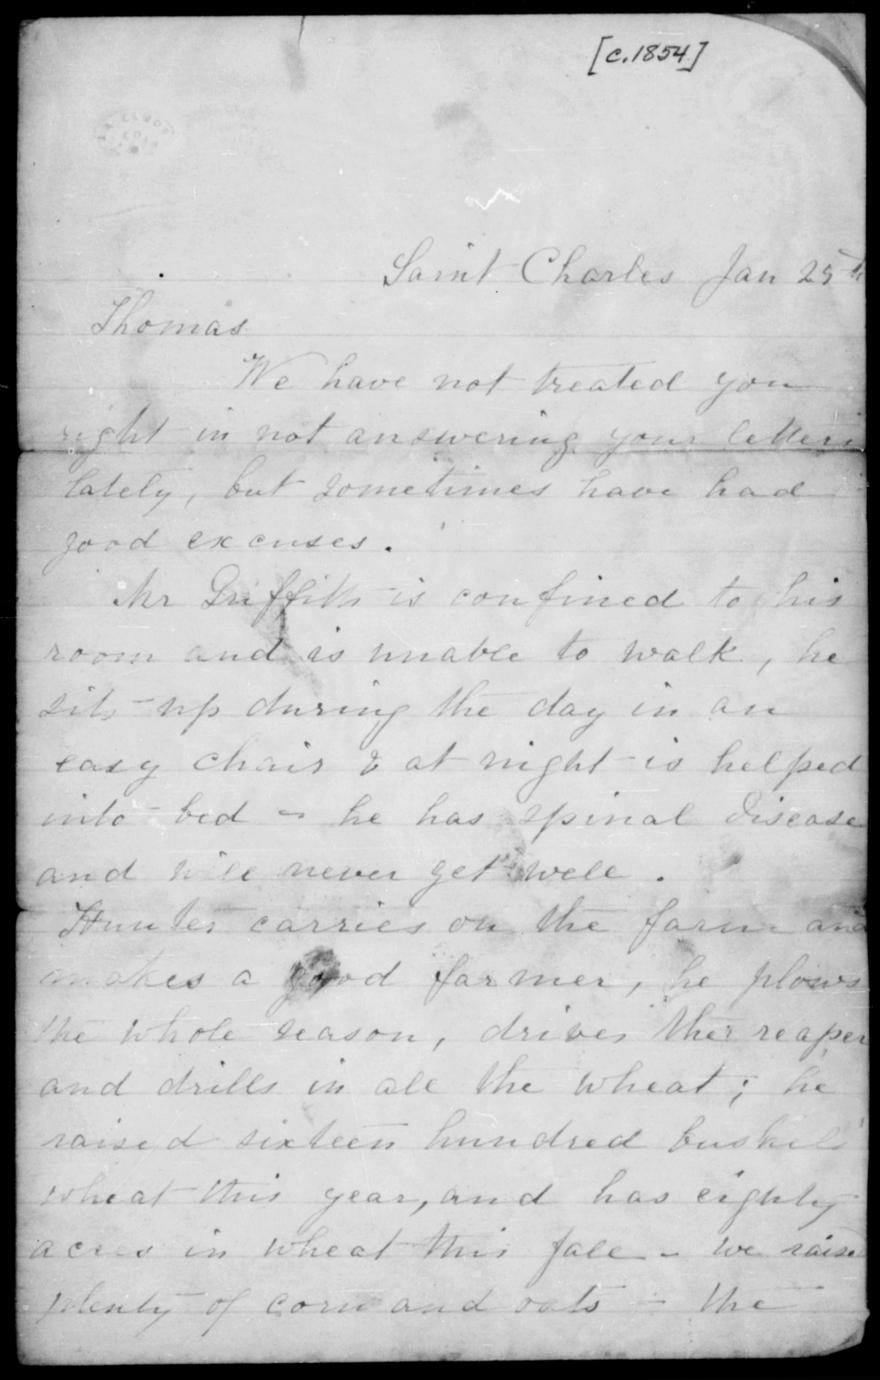 [c. 1854]
Saint Charles Jan 25th
Thomas
We have not treated you
right in not answering your letters
lately, but sometimes have had
good excuses.
Mr Griffith is confined to his
room and is unable to walk, he
sits up during the day in an
easy chair & at night is helped
into bed - he has spinal disease
and will never get well.
Hunter carries on the farm and
makes a good farmer, he plows
the whole season, drives the reaper
and drills in all the wheat; he
raised sixteen hundred bushels
wheat this year, and has eighty
acres in wheat this fall - we raise
plenty of corn and oats - the